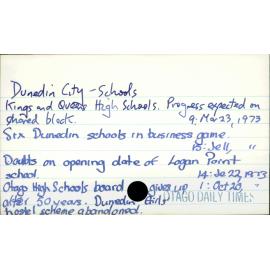 Dunedin City - Schools
Kings and Queens High Schools. Progress expected on
shared block. 9: Mar 23, 1973
Six Dunedin schools in business game.
15: Je 11, "
Doubts on opening date of Logan Point
school. 14: Je 22, 1973
Otago High Schools board gives up 1: Oct 20, "
after 50 years. Dunedin Girls
hostel scheme abandoned.
OTAGO DAILY TIMES